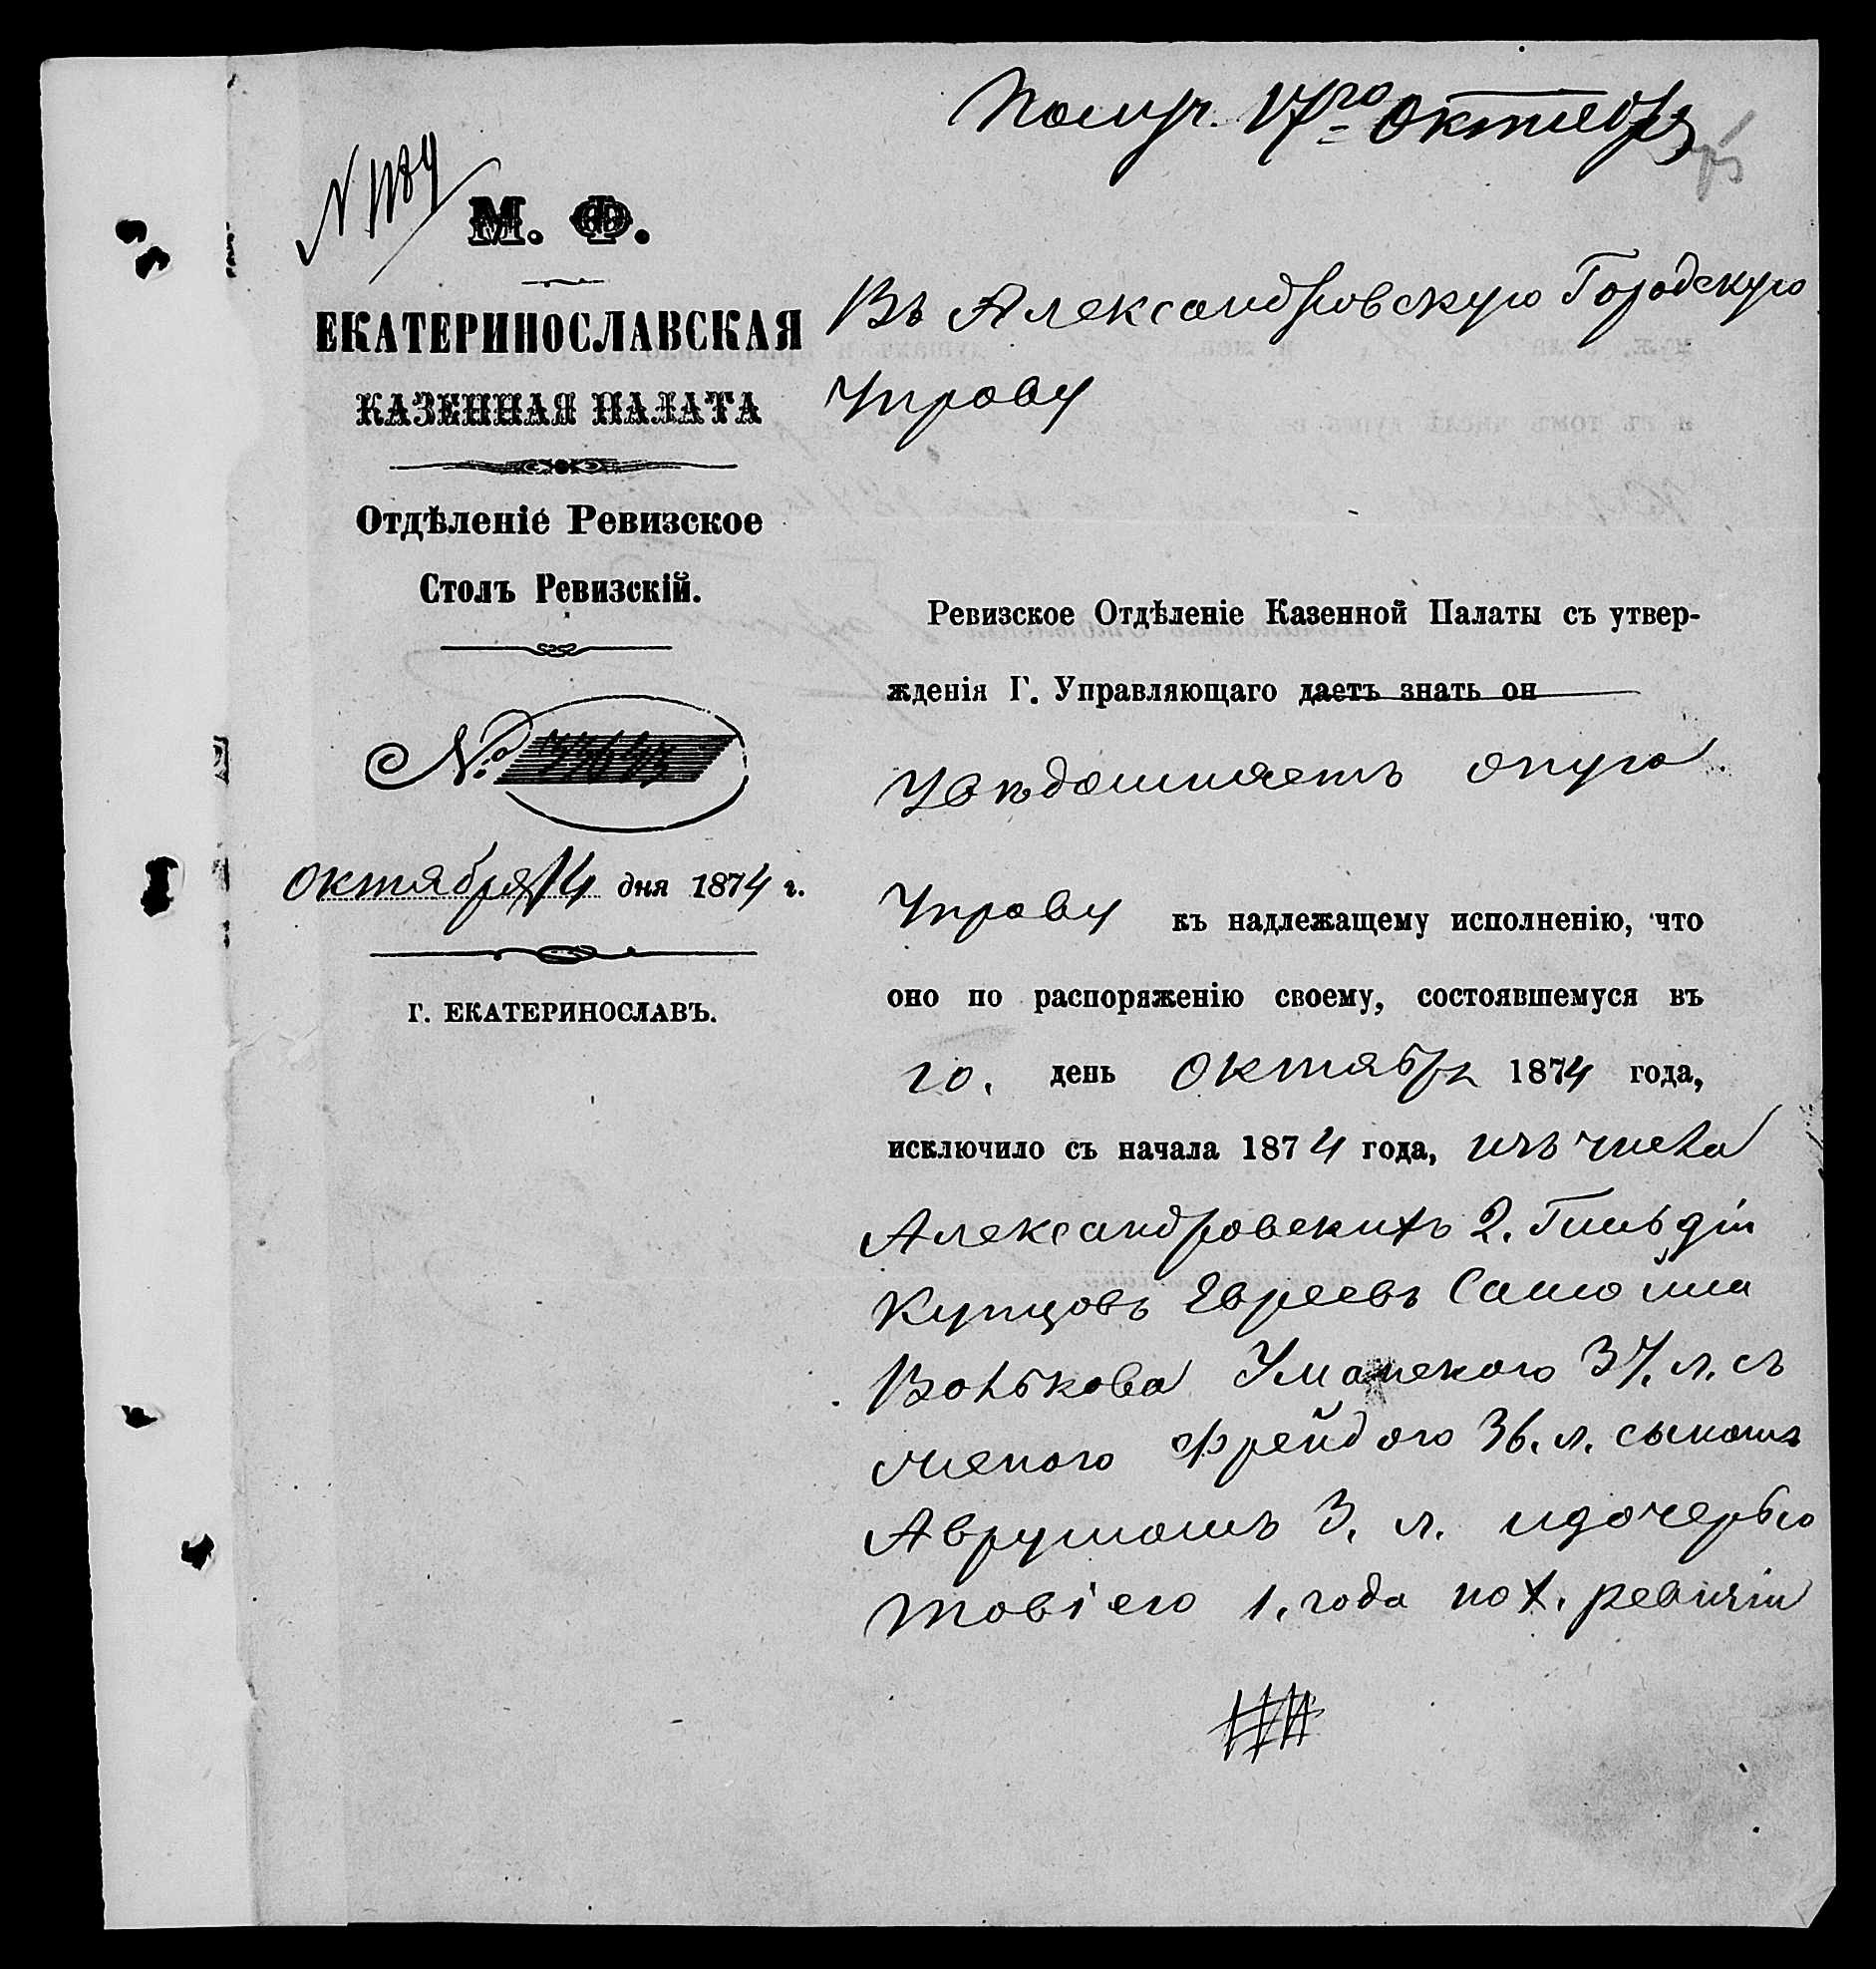 Получ. 17го Октября
М. Ф.
ЕКАТЕРИНОСЛАВСКАЯ
КАЗЕННАЯ ПАЛАТА
Отдѣленіе Ревизское
Столъ Ревизскій.
№
Октября 14 дня 1874 г.
Г. ЕКАТЕРИНОСЛАВЪ.
Въ Александровскую Городскую
Управу
Ревизское Отдѣленіе Казенной Палаты съ утвер-
жденія Г. Управляющаго даетъ знать он
Увѣдомляетъ оную
Управу къ надлежащему исполненію, что
оно по распоряженію своему, состоявшемуся въ
10. день Октября 1874 года,
исключило съ начала 1874 года, изъ числа
Александровскихъ 2. Гильдіи
Купцовъ Евреевъ Самойла
Волькова Уманскаго 37. л. съ
женою Фрейдою 36. л. сыномъ
Аврумомъ 3. л. и дочерью
Товіею 1. года по X. ревизіи